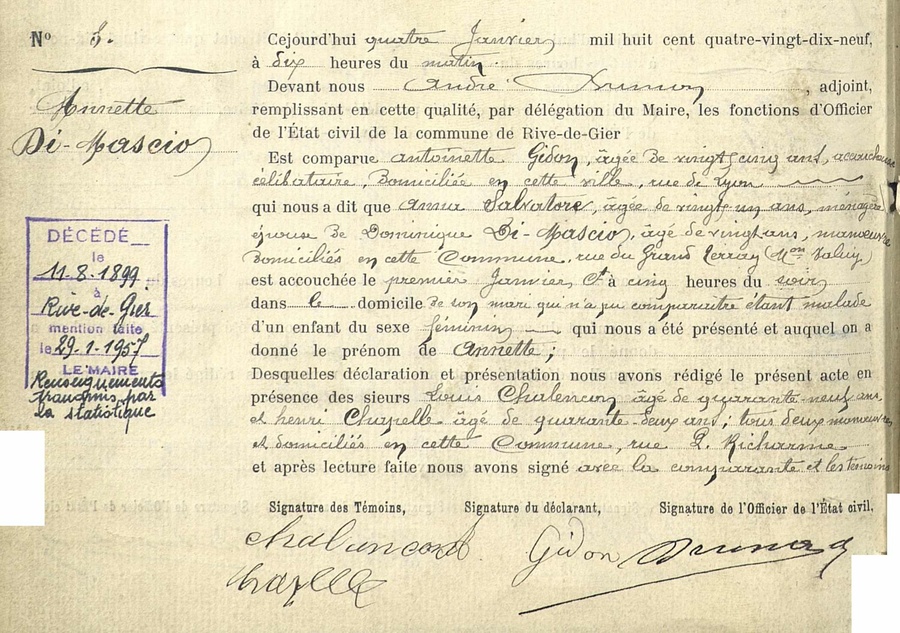 N° 3.
Annette
Di-Mascio
DÉCÉDÉ
le
11-8-1899
à
Rive-de-Gier
mention faite
le 29-1-1957
LE MAIRE
Renseignements
transmis par
la statistique
Cejourd'hui quatre Janvier mil huit cent quatre-vingt-dix-neuf,
à dix heures du matin
Devant nous André , adjoint,
remplissant en cette qualité, par délégation du Maire, les fonctions d'Officier
de l'État civil de la commune de Rive-de-Gier
Est comparue antoinette Gidon, âgée de vingt cinq ans, accoucheuse
célibataire, Domiciliée en cette ville, rue de Lyon
qui nous a dit que anna Salvatore, âgée de vingt-un ans, ménagère
épouse de Dominique Di-Mascio, âgé de vingt ans, manoeuvre
Domiciliés en cette Commune, rue du Grand (Mon
est accouchée le premier Janvier Ct à cinq heures du soir
dans le domicile de son mari qui n'a pu comparaitre étant malade
d'un enfant du sexe féminin qui nous a été présenté et auquel on a
donné le prénom de Annette ;
Desquelles déclaration et présentation nous avons rédigé le présent acte en
présence des sieurs Louis Chalencon âgé de quarante-neuf ans,
et henri Chapelle âgé de quarante-deux ans ; tous deux manoeuvres
et domiciliés en cette Commune, rue P. Richarme
et après lecture faite nous avons signé avec la comparante et les temoins
Signature des Témoins, Signature du déclarant, Signature de l'Officier de l'État civil,
chalancon Gidon